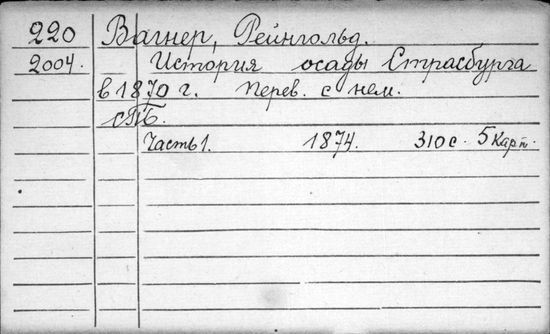 220 Вагнер, Рейнгольд.
2004. История осады Страсбурга
в 1870 г. Перев. с нем.
СПБ.
Часть 1. 1874. 310 с. 5 карт.